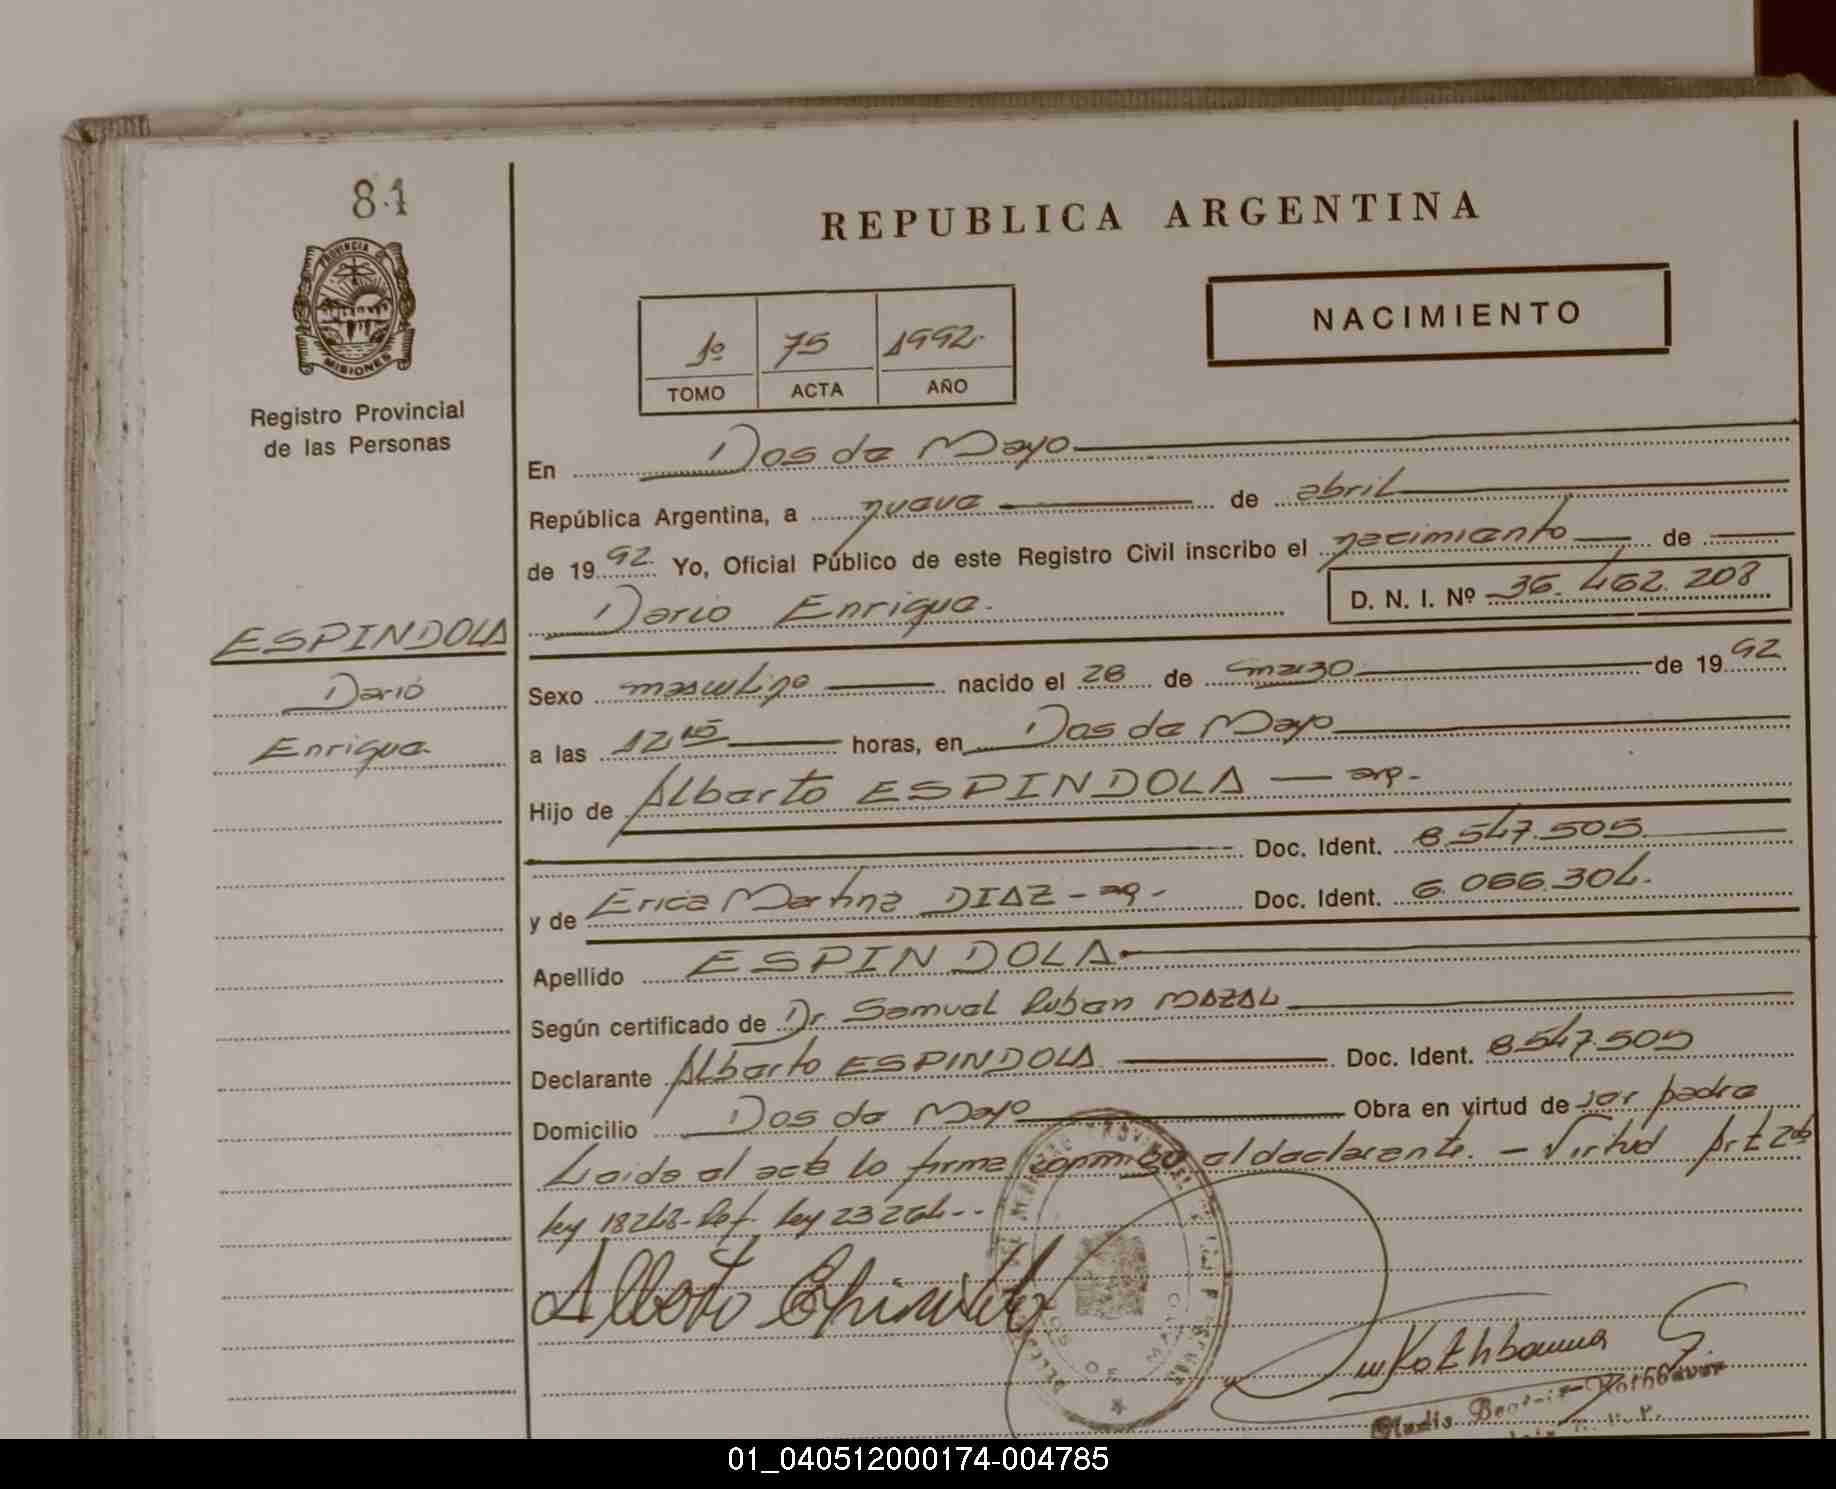 81
REPUBLICA ARGENTINA
PROVINCIA DE
MISIONES
NACIMIENTO
1º 75 1992.
TOMO ACTA AÑO
Registro Provincial
de las Personas
En Dos de Mayo
República Argentina, a nueve de abril
de 1992. Yo, Oficial Público de este Registro Civil inscribo el nacimiento de
Dario Enrique. D. N. I. Nº 36.462.208
ESPINDOLA
Dario
Enrique.
Sexo masculino nacido el 28 de marzo de 1992
a las 12,15 horas, en Dos de Mayo
Hijo de Alberto ESPINDOLA — arg.
Doc. Ident. 8.547.505
y de Erica Martina DIAZ - arg - Doc. Ident. 6.066.304.
Apellido ESPINDOLA
Según certificado de Dr Samuel Ruben MAZAL
Declarante Alberto ESPINDOLA Doc. Ident. 8.547.505
Domicilio Dos de Mayo Obra en virtud de ser padre
Leida el acta lo firma conmigo el declarante. — Virtud Art 2do
ley 18248-Ref. ley 23264--
Alberto Espindola
Rothbauer G.
Gladis Beatriz Rothbauer
01_040512000174-004785